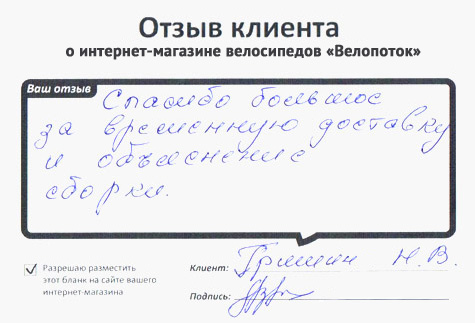 Отзыв клиента
о интернет-магазине велосипедов «Велопоток»
Ваш отзыв
Спасибо большое
за временную доставку
и объяснение
сборки.
Разрешаю разместить
этот бланк на сайте вашего
интернет-магазина
Клиент: Гришин Н.В.
Подпись: